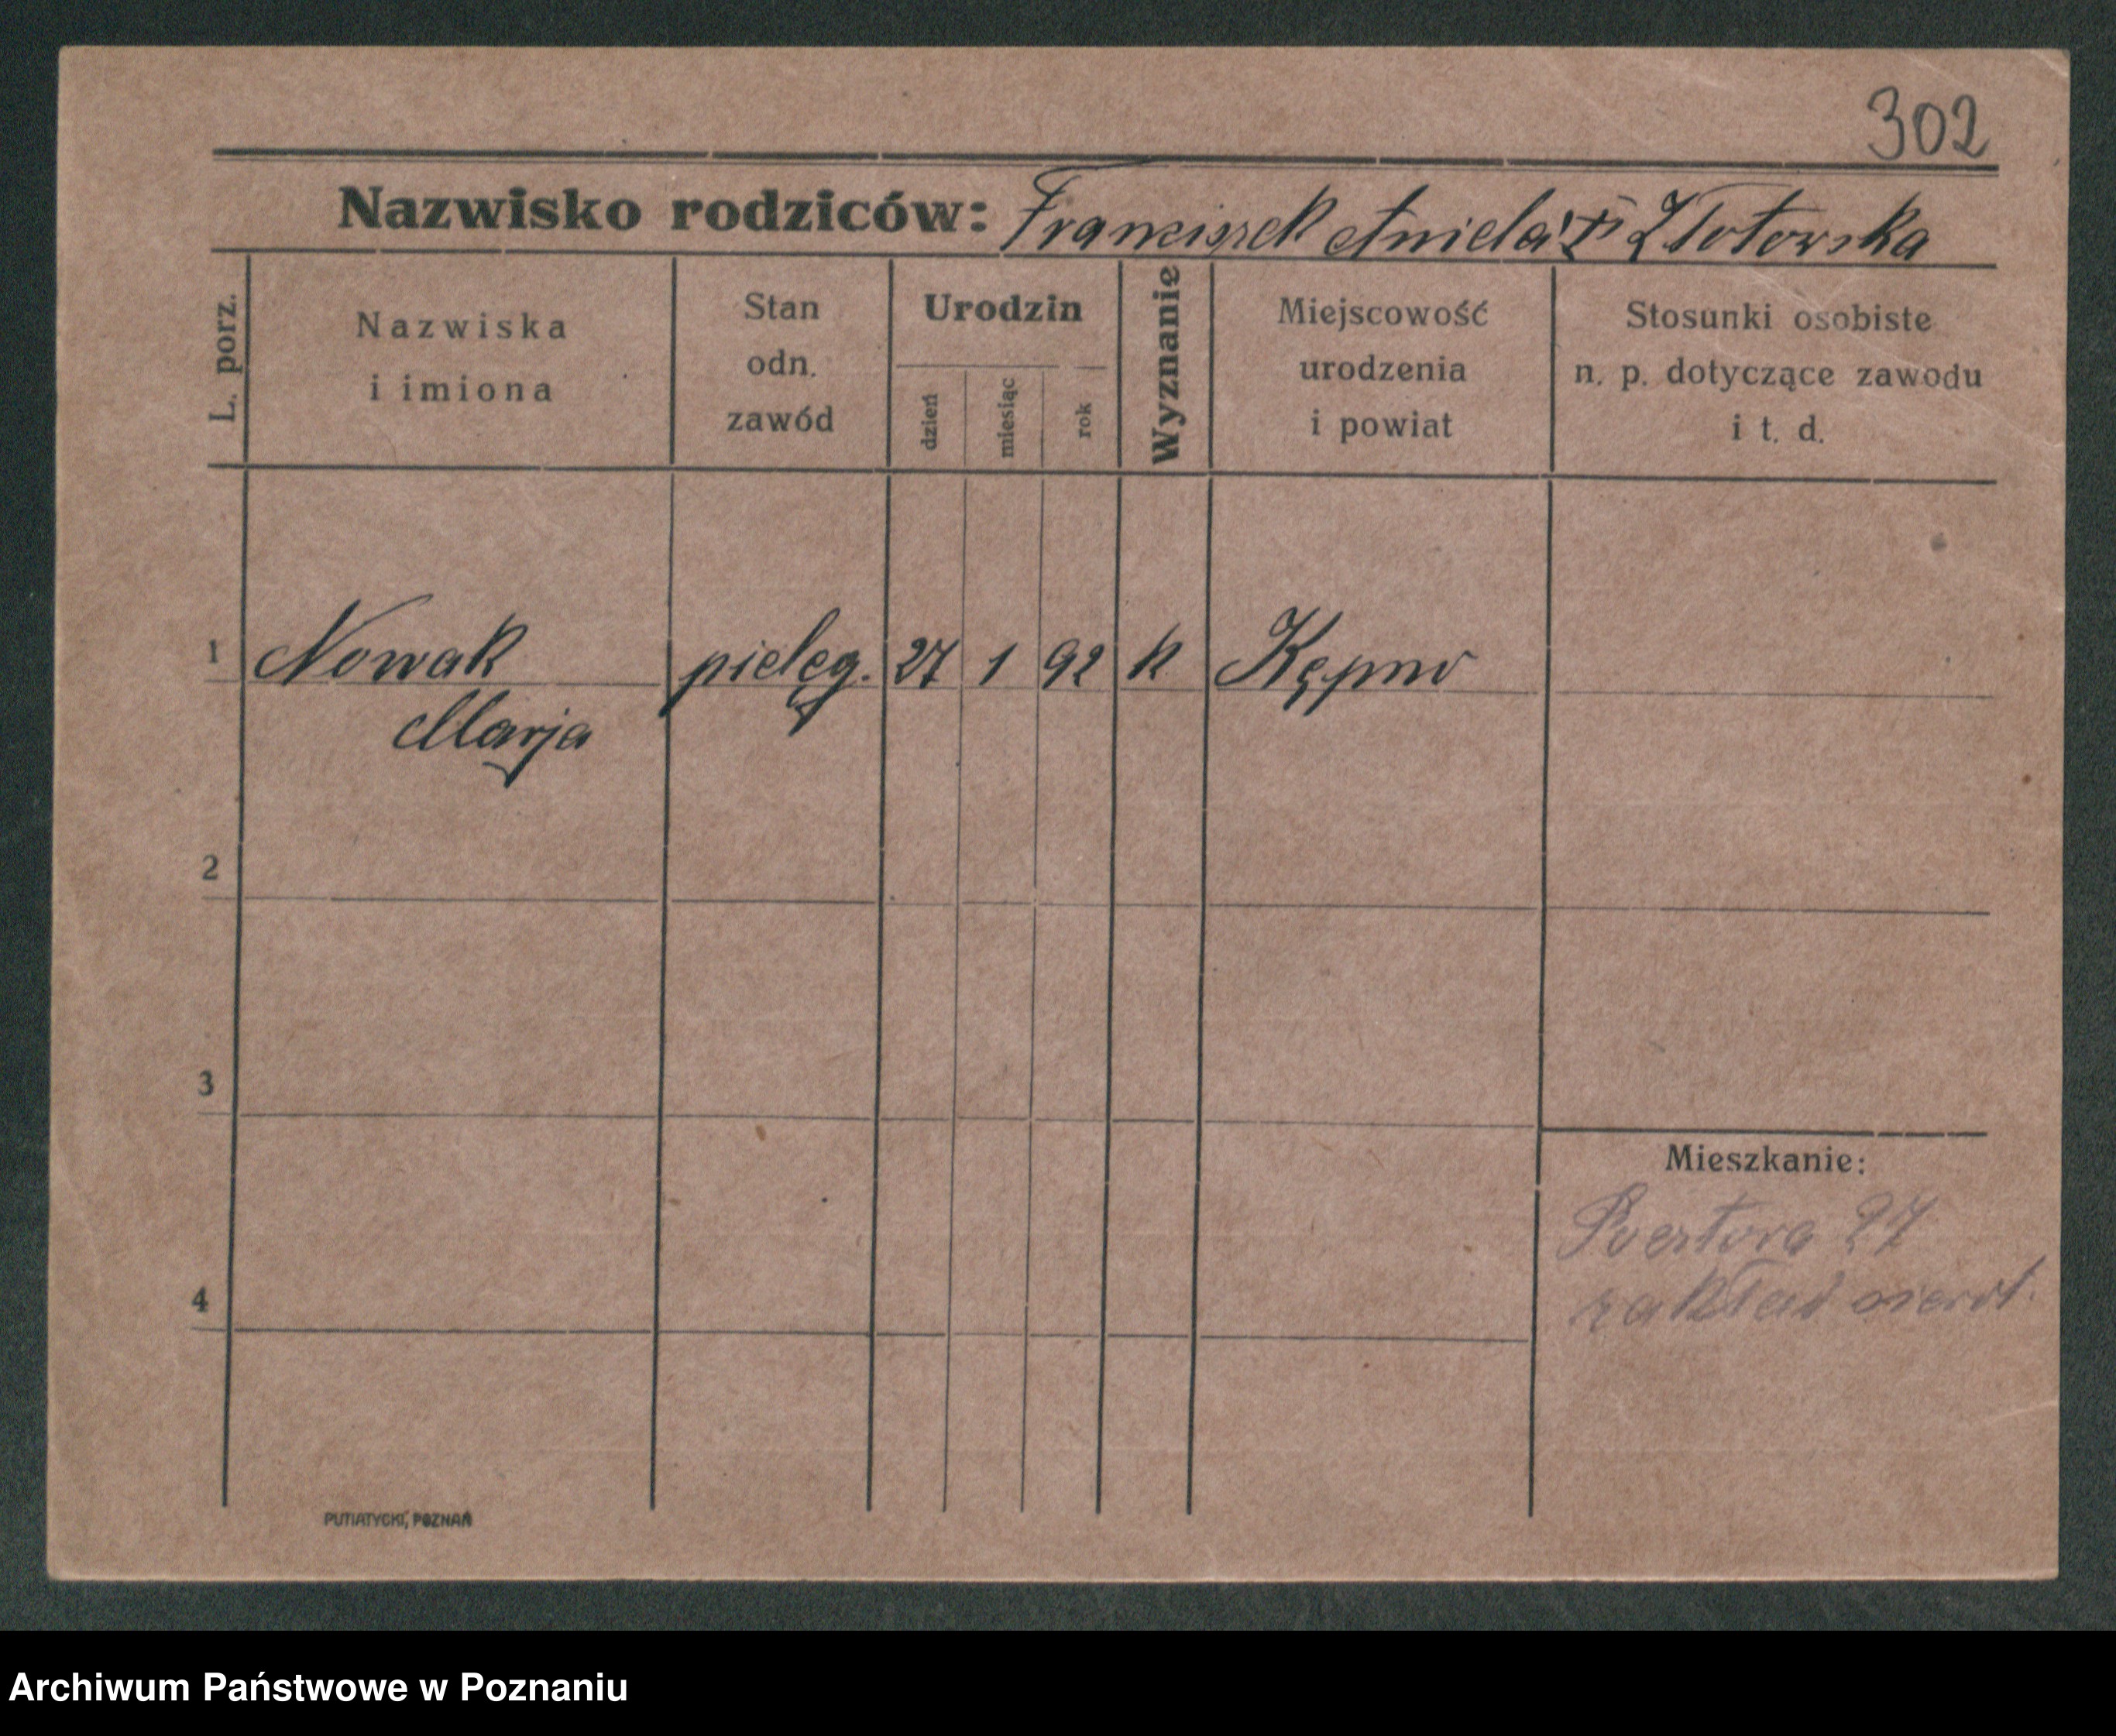 302
Nazwisko rodziców: Franciszek Aniela Złotowska
L. porz.
Nazwiska
i imiona
Stan
odn.
zawód
Urodzin
dzień
miesiąc
rok
Wyznanie
Miejscowość
urodzenia
i powiat
Stosunki osobiste
n. p. dotyczące zawodu
i t. d.
1 Nowak pielęg. 27 1 92 k Kępno
Marja
2
3
4
Mieszkanie:
27
zakład
PUTIATYCKI, POZNAŃ
Archiwum Państwowe w Poznaniu